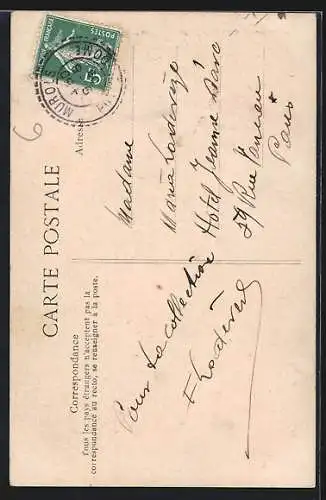 CARTE POSTALE
Correspondance
Tous les pays étrangers n'acceptent pas la
correspondance au recto, se renseigner à la poste.
Adresse
Pour ta collection
Madame
Maria
Hotel Jeanne d'Arc
59 Rue
Paris
POSTES
5c
MUROL
6